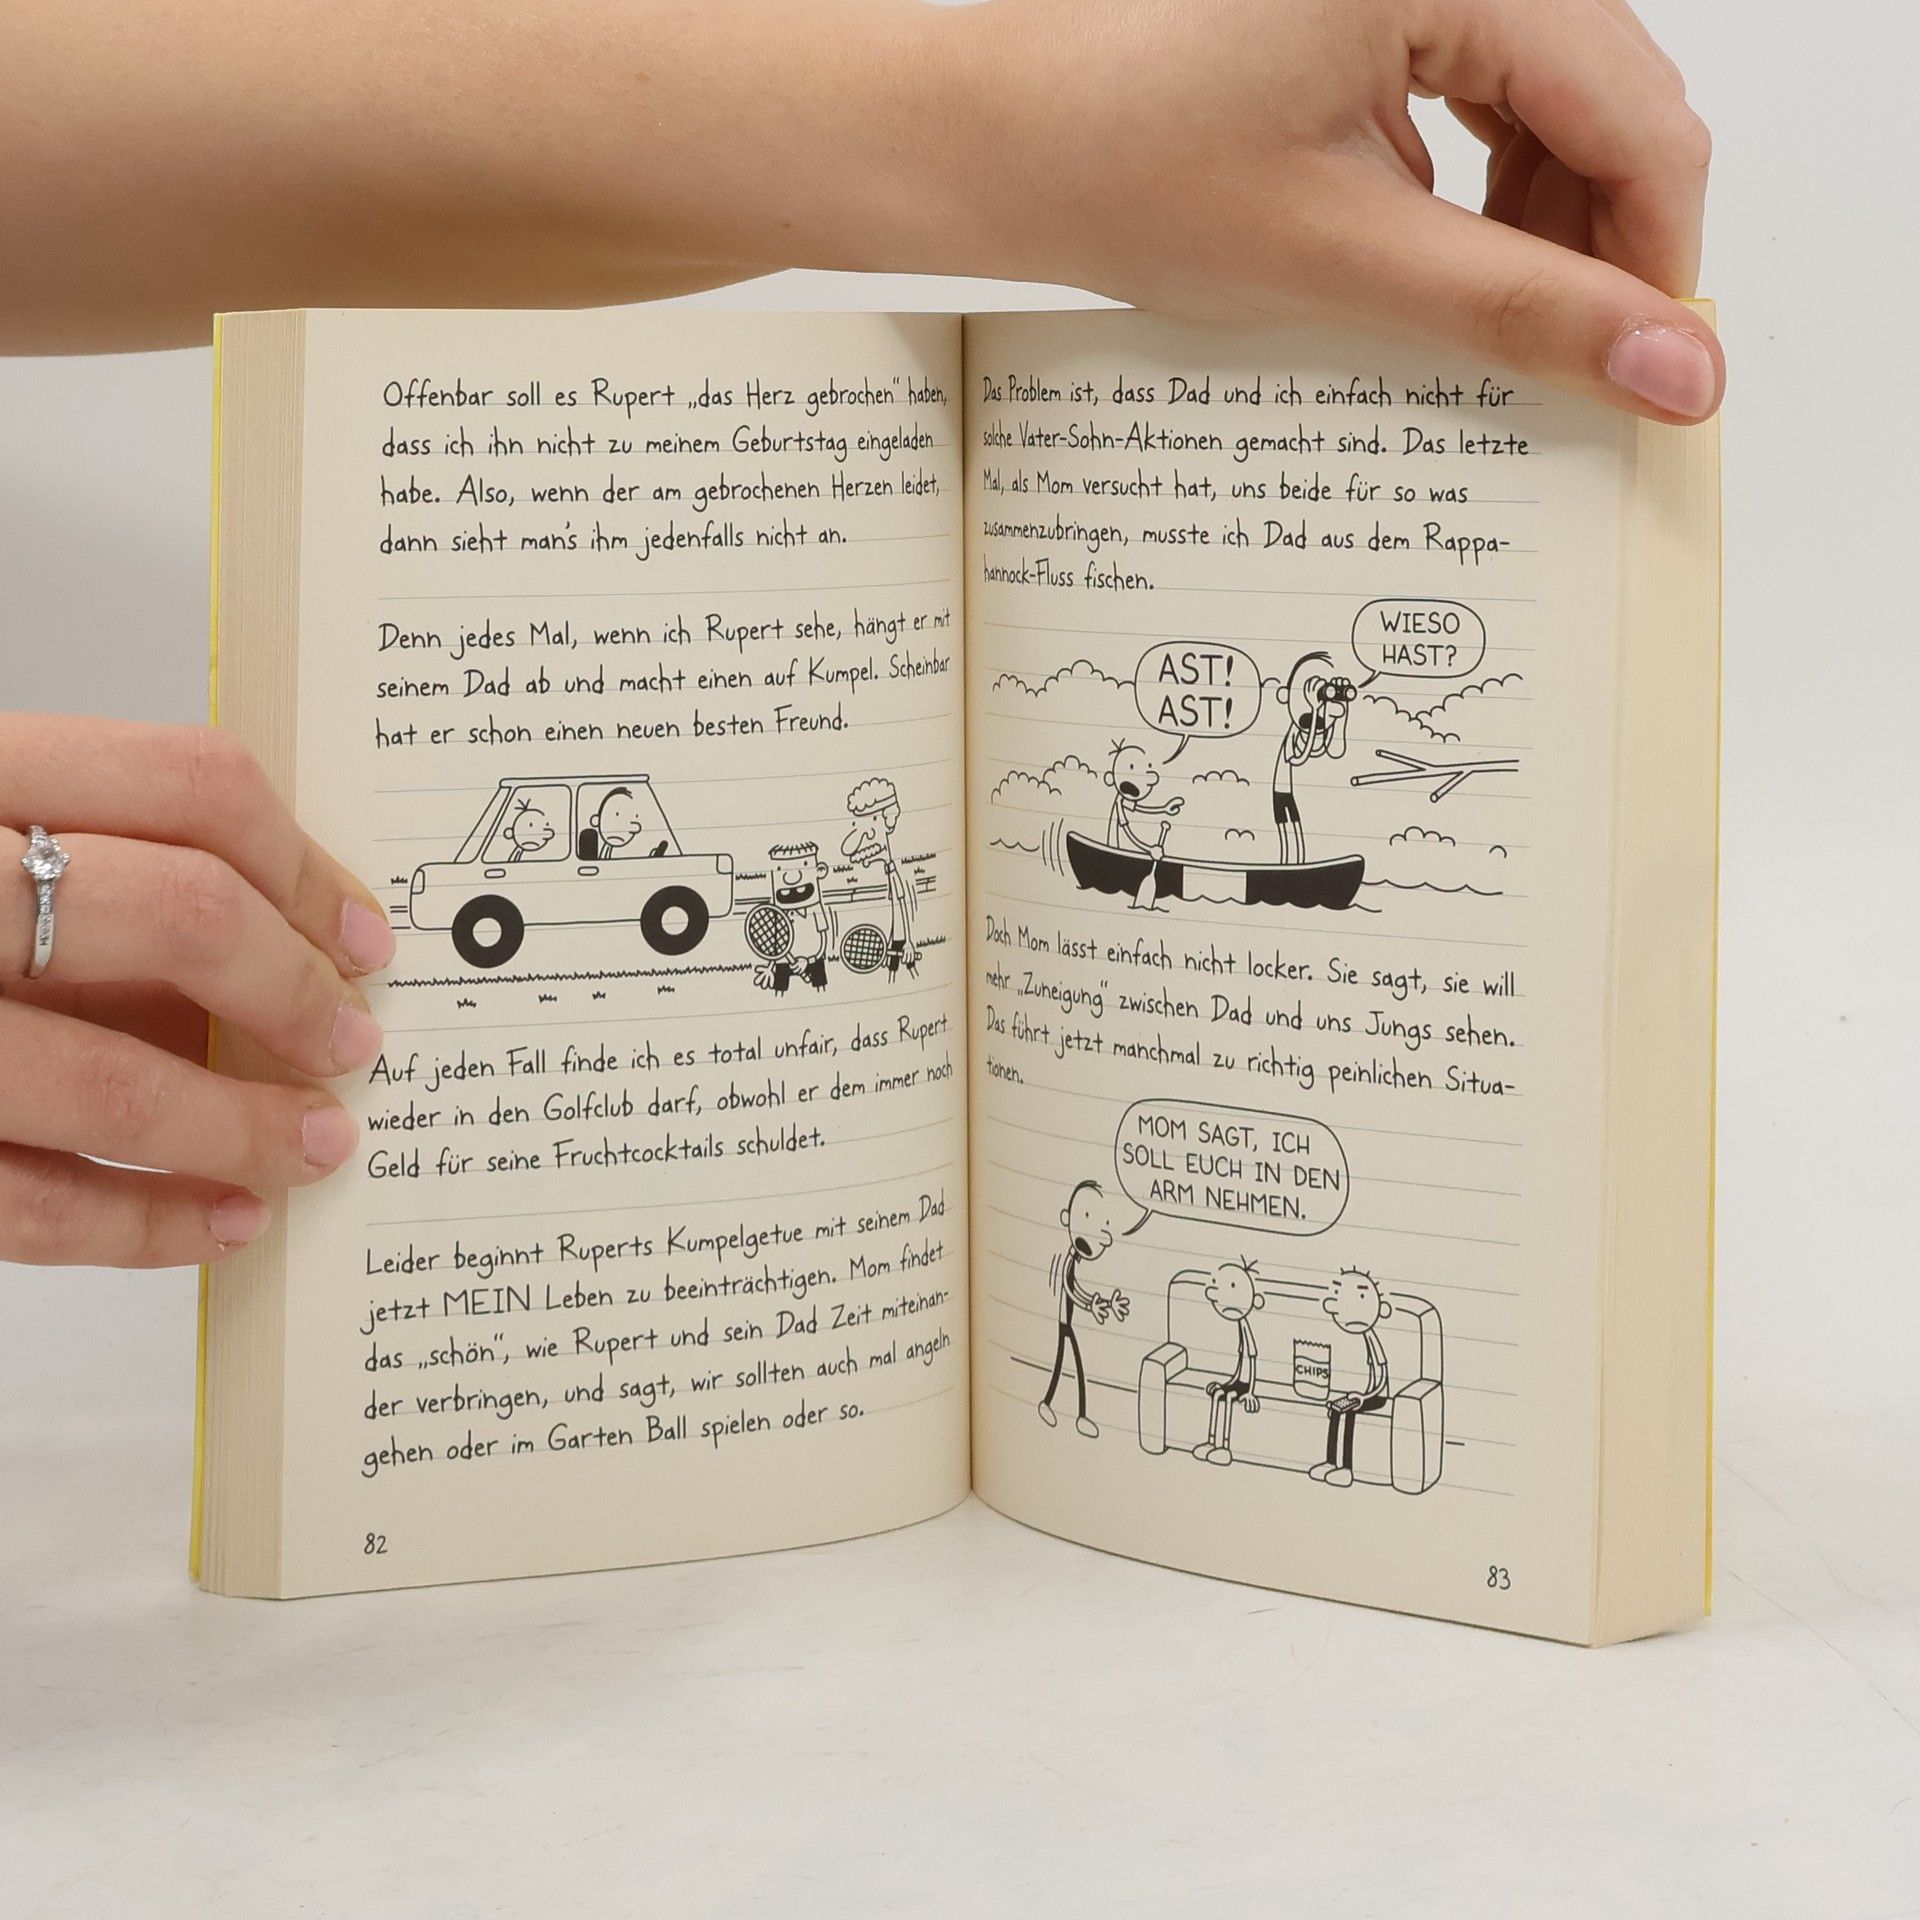 Offenbar soll es Rupert „das Herz gebrochen“ haben,
dass ich ihn nicht zu meinem Geburtstag eingeladen
habe. Also, wenn der am gebrochenen Herzen leidet,
dann sieht man's ihm jedenfalls nicht an.
Denn jedes Mal, wenn ich Rupert sehe, hängt er mit
seinem Dad ab und macht einen auf Kumpel. Scheinbar
hat er schon einen neuen besten Freund.
Auf jeden Fall finde ich es total unfair, dass Rupert
wieder in den Golfclub darf, obwohl er dem immer noch
Geld für seine Fruchtcocktails schuldet.
Leider beginnt Ruperts Kumpelgetue mit seinem Dad
jetzt MEIN Leben zu beeinträchtigen. Mom findet
das „schön“, wie Rupert und sein Dad Zeit miteinan-
der verbringen, und sagt, wir sollten auch mal angeln
gehen oder im Garten Ball spielen oder so.
82
Das Problem ist, dass Dad und ich einfach nicht für
solche Vater-Sohn-Aktionen gemacht sind. Das letzte
Mal, als Mom versucht hat, uns beide für so was
zusammenzubringen, musste ich Dad aus dem Rappa-
hannock-Fluss fischen.
AST!
AST!
WIESO
HAST?
Doch Mom lässt einfach nicht locker. Sie sagt, sie will
mehr „Zuneigung“ zwischen Dad und uns Jungs sehen.
Das führt jetzt manchmal zu richtig peinlichen Situa-
tionen.
MOM SAGT, ICH
SOLL EUCH IN DEN
ARM NEHMEN.
CHIPS
83